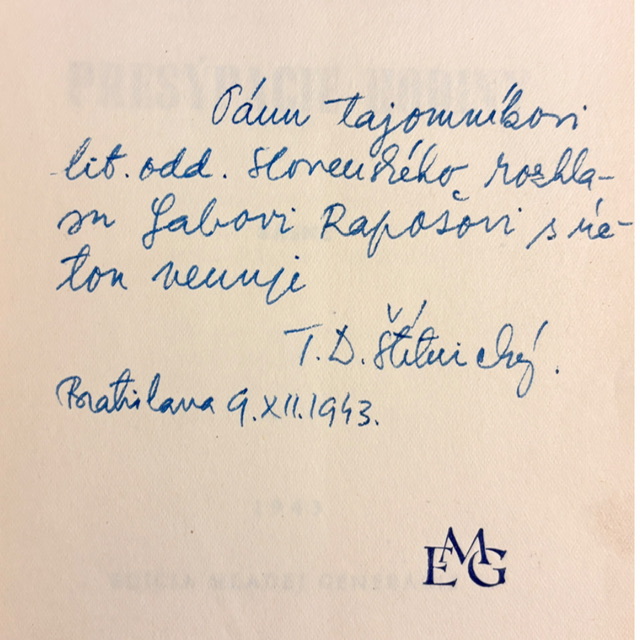 Pánu tajomníkovi
lit. odd. Slovenského rozhla-
su Gabovi Rapošovi s úc-
tou venuje
T. D. Štítnický.
Bratislava 9.XII.1943.
EMG
PRESÝPACIE HODINY
1943
EDÍCIA MLADEJ GENERÁCIE